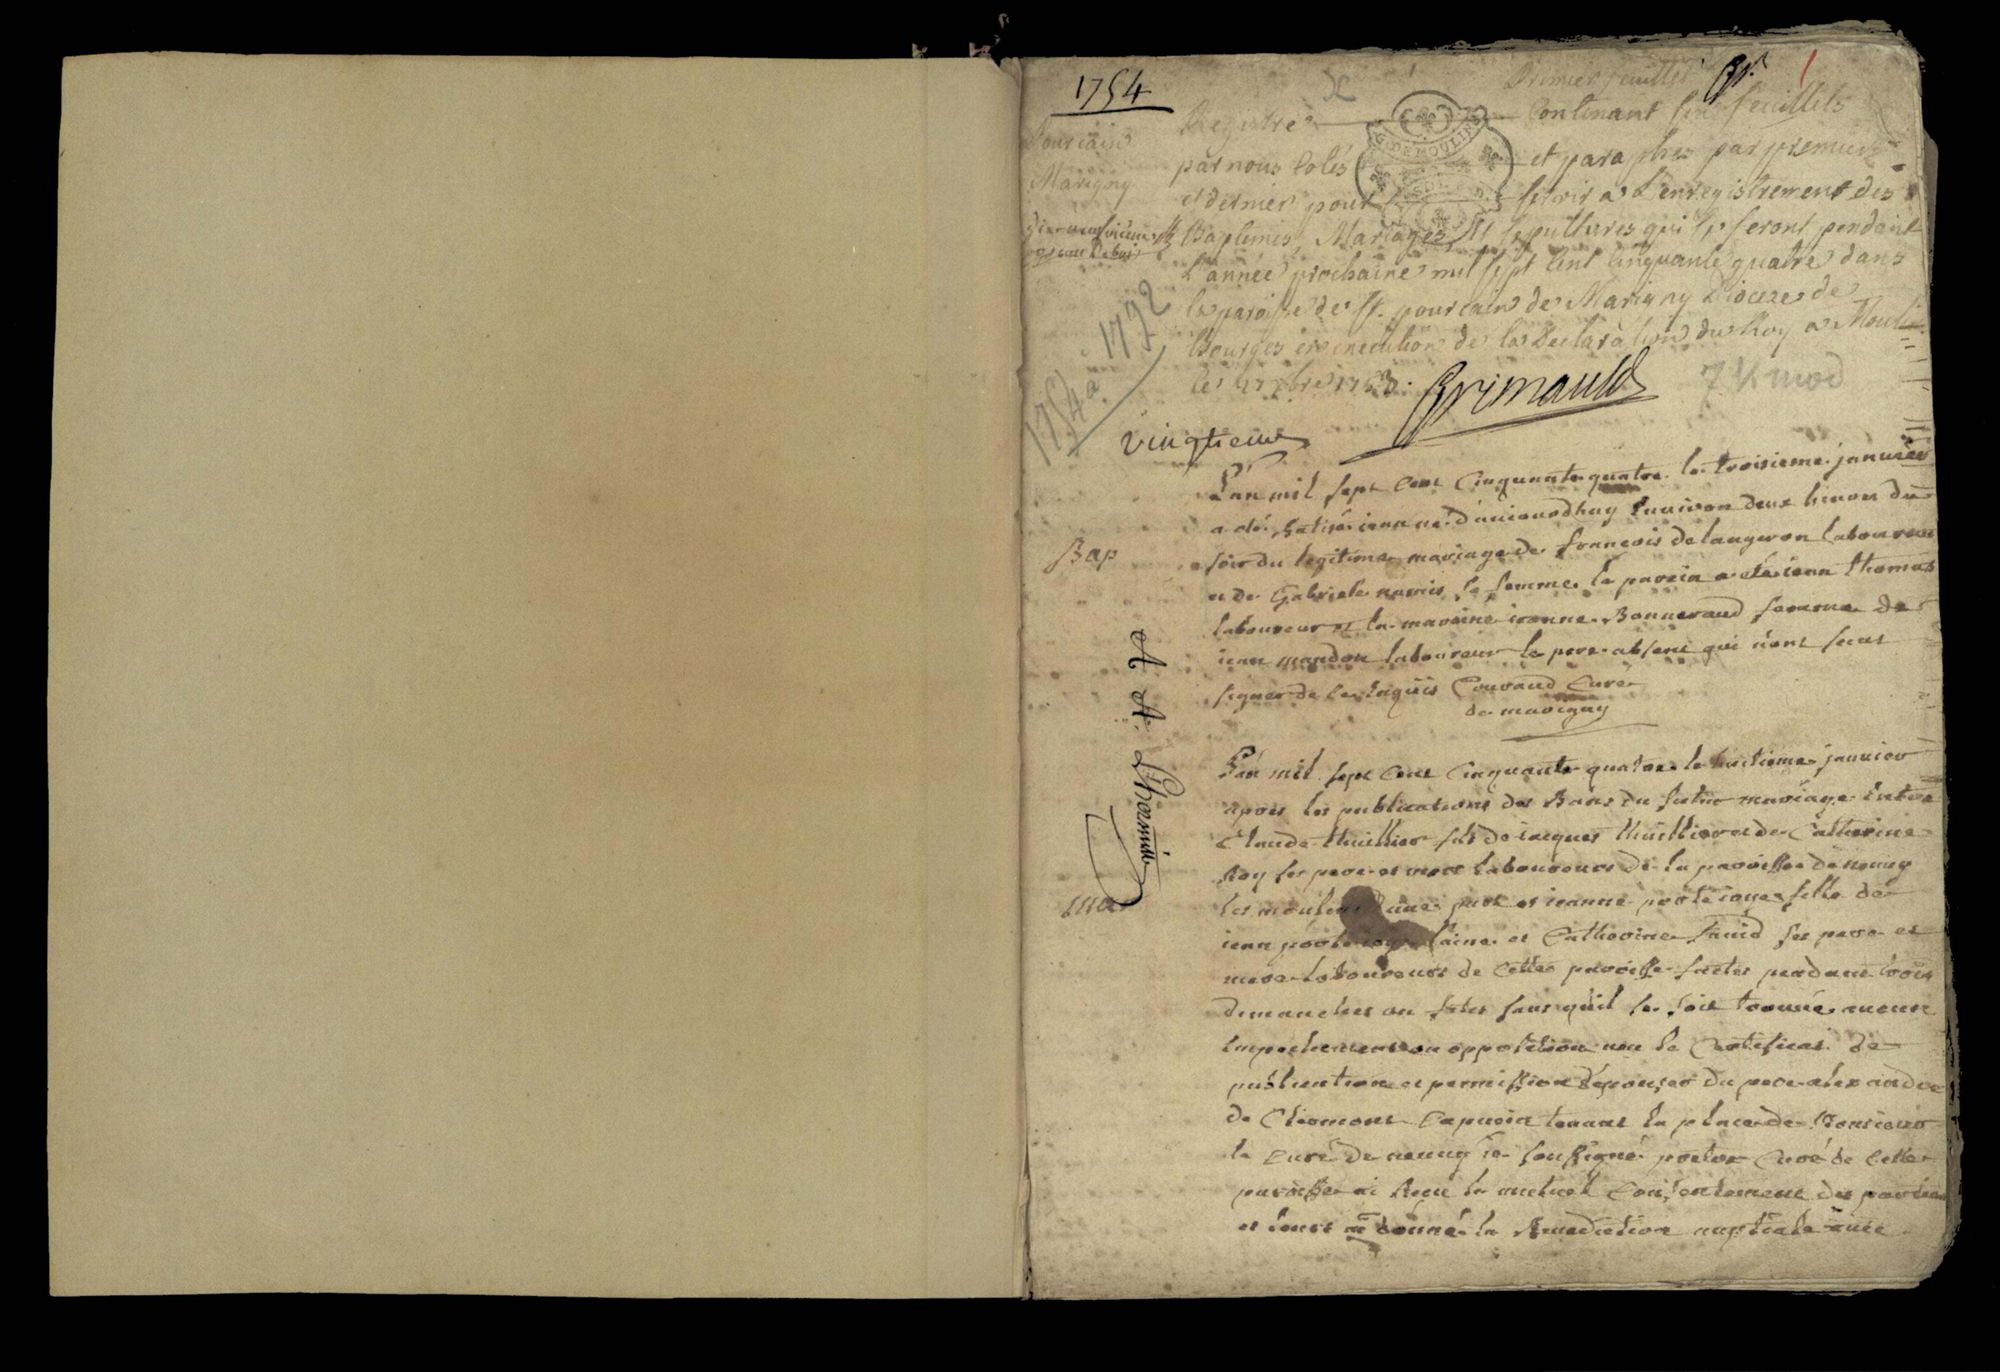 1754
Premier feuillet
1
Registre Contenant six feuillets
par nous Cotés et paraphes par premier
et dernier pour servir a L'enregistrement des
Baptemes, Mariages et sepultures qui se feront pendant
L'année prochaine mil sept cent Cinquante quatre dans
la paroisse de St. pourcain de Marigny Dioceze de
Bourges en execution de la Declaration du Roy a Moulins
1753. Grimauld
pourcain
Marigny
GE. DE MOULINS
1754 a. 1792
7 1/2 mod
vingtieme
L'an mil sept Cent Cinquante quatre le troisieme janvier
a été batisé iean né d'auiourdhuy Environ deux heures du
soir du legitime mariage de francois delaugeron laboureur
et de Gabriele namis sa femme le parein a été iean thomas
laboureur et la maraine ieanne Bonneraud femme de
iean mandon laboureur le pere absent qui n'ont sceut
signer de ce Enquis Couraud Curé
de marigny
Bap
A. A. Lhermitte
L'an mil sept Cent Cinquante quatre le huitieme janvier
apres les publications des Bans du futur mariage Entre
Claude thuillier fils de iacques thuillier et de Catherine
Roy ses pere et mere laboureurs de la paroisse de neuvy
les moulins d'une part et ieanne portejoye fille de
iean portejoye l'aine et Catherine ses pere et
mere laboureurs de Cette paroisse faites pendant trois
dimanches ou fetes sans qu'il se soit trouvé aucun
Empechement ou opposition vu le Certificat de
publication et permission d'épouser du pere alexandre
de Clermont Capucin tenant la place de Monsieur
le Curé de neuvy ie soussigné pretre Curé de Cette
paroisse ai Reçu le mutuel Consentement des parties
et leurs ai donné la Benediction nuptiale avec
ma